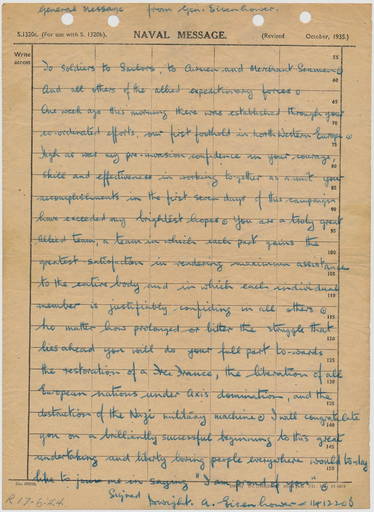 General Message from Gen. Eisenhower.
S.1320c. (For use with S. 1320b). NAVAL MESSAGE. (Revised October, 1935.)
Write across
55
To Soldiers to Sailors, to Airmen and Merchant Seamen
60
And all others of the allied expeditionary forces
65
One week ago this morning there was established through your
70
co-ordinated efforts, our first foothold in North Western Europe
75
high as was my pre-invasion confidence in your courage,
80
skill and effectiveness in working together as a unit your
85
accomplishments in the first seven days of this campaign
90
have exceeded my brightest hopes You are a truly great
95
Allied team, a team in which each part gains the
100
greatest satisfaction in rendering maximum assistance
105
to the entire body and in which each individual
110
member is justifiably confiding in all others
115
No matter how prolonged or bitter the struggle that
120
lies ahead you will do your full part to-wards
125
the restoration of a Free France, the liberation of all
130
European nations under Axis domination, and the
135
destruction of the Nazi military machine I all congratulate
140
you on a brilliantly successful beginning to this great
145
undertaking and liberty loving people everywhere would to-day
150
like to join me in saying "I am proud of you"
Signed Dwight. A. Eisenhower
R 17-6-44